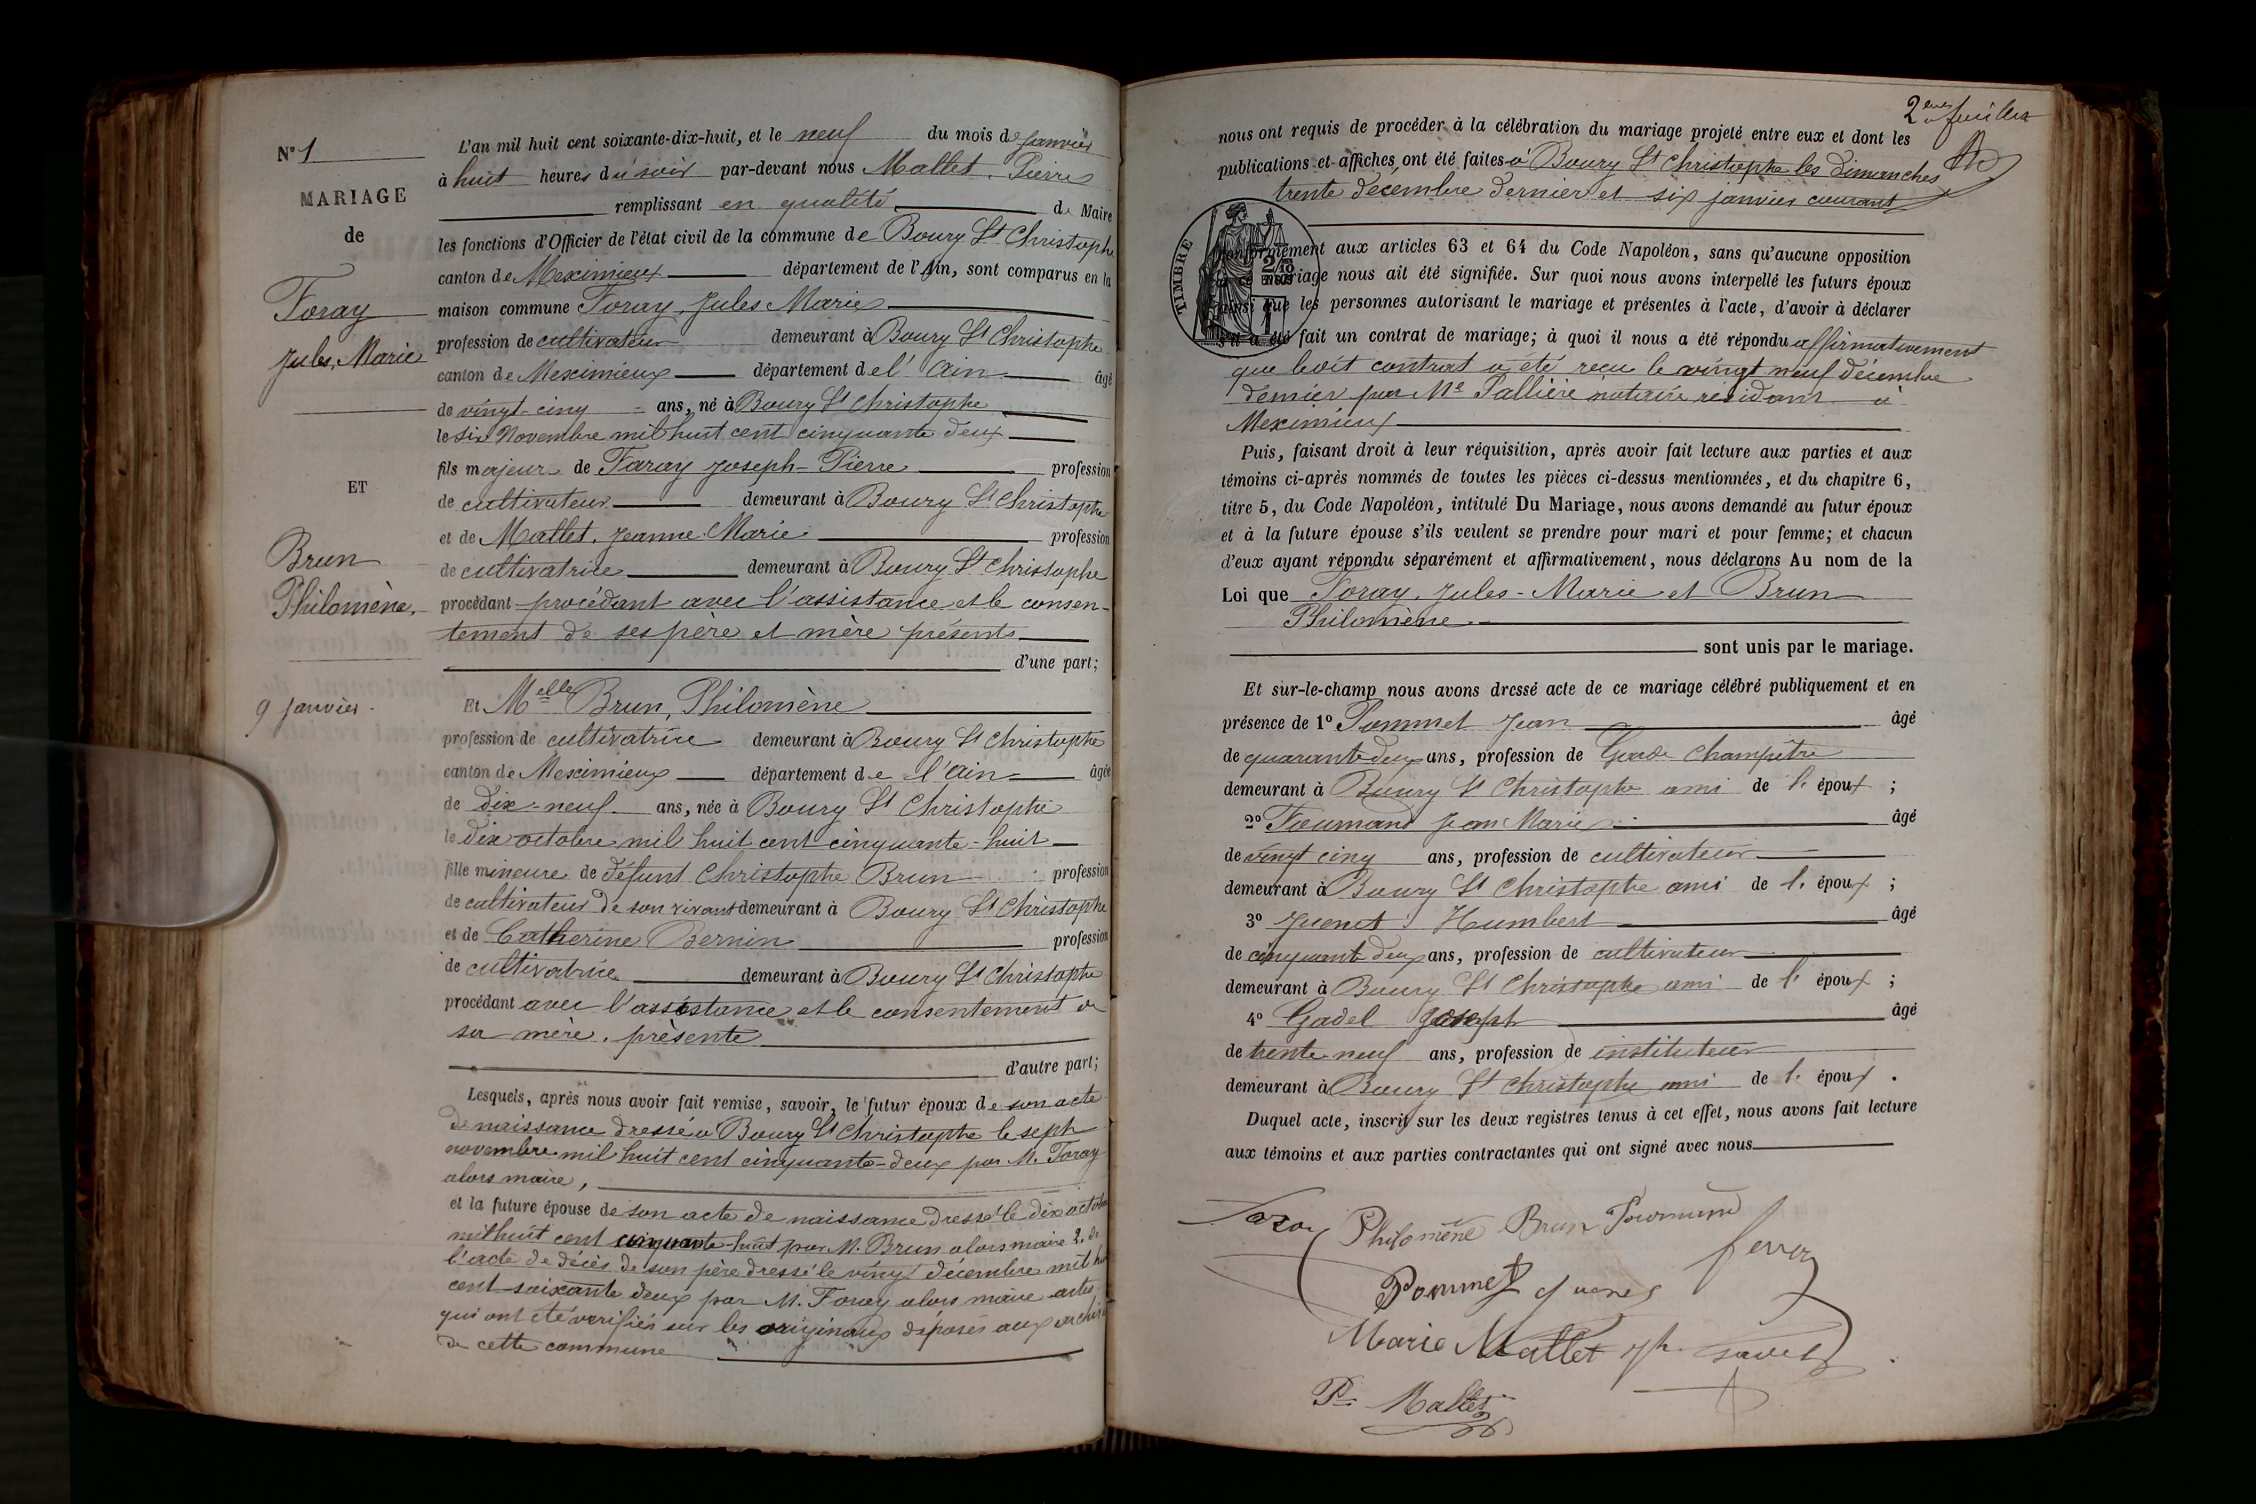 N° 1
MARIAGE
de
Foray
Jules, Marie
ET
Brun
Philomène,
9 janvier.
L'an mil huit cent soixante-dix-huit, et le neuf du mois de janvier
à huit heures du soir par-devant nous Mallet, Pierre
remplissant en qualité de Maire
les fonctions d'Officier de l'état civil de la commune de Boury St Christophe
canton de Meximieux département de l'Ain, sont comparus en la
maison commune Foray, Jules Marie
profession de cultivateur demeurant à Boury St Christophe
canton de Meximieux département de l' Ain âgé
de vingt-cinq ans, né à Boury St Christophe
le six Novembre mil huit cent cinquante deux
fils majeur de Foray Joseph-Pierre profession
de cultivateur demeurant à Boury St Christophe
et de Mallet, Jeanne Marie profession
de cultivatrice demeurant à Boury St Christophe
procédant procédant avec l'assistance et le consen-
tement de ses père et mère présents
d'une part;
Et Melle Brun, Philomène
profession de cultivatrice demeurant à Boury St Christophe
canton de Meximieux département de l'Ain âgée
de dix-neuf ans, née à Boury St Christophe
le dix octobre mil huit cent cinquante-huit
fille mineure de défunt Christophe Brun profession
de cultivateur de son vivant demeurant à Boury St Christophe
et de Catherine Bernin profession
de cultivatrice demeurant à Boury St Christophe
procédant avec l'assistance et le consentement de
sa mère, présente
d'autre part;
Lesquels, après nous avoir fait remise, savoir, le futur époux de son acte
de naissance dressé à Boury St Christophe le sept
novembre mil huit cent cinquante-deux par M. Foray
alors maire,
et la future épouse de son acte de naissance dressé le dix octobre
mil huit cent cinquante-huit par M. Brun alors maire 2. de
l'acte de décès de son père dressé le vingt décembre mil huit
cent soixante deux par M. Foray alors maire actes
qui ont été vérifiés sur les originaux déposés aux archives
de cette commune
2eme feuillet
nous ont requis de procéder à la célébration du mariage projeté entre eux et dont les
publications et affiches ont été faites à Boury St Christophe les dimanches
trente décembre dernier et six janvier courant
TIMBRE
2/10
EN SUS
conformément aux articles 63 et 64 du Code Napoléon, sans qu'aucune opposition
à ce mariage nous ait été signifiée. Sur quoi nous avons interpellé les futurs époux
ainsi que les personnes autorisant le mariage et présentes à l'acte, d'avoir à déclarer
s'il a été fait un contrat de mariage; à quoi il nous a été répondu affirmativement
que ledit contrat a été reçu le vingt neuf décembre
dernier par Me Pallière notaire résidant à
Meximieux
Puis, faisant droit à leur réquisition, après avoir fait lecture aux parties et aux
témoins ci-après nommés de toutes les pièces ci-dessus mentionnées, et du chapitre 6,
titre 5, du Code Napoléon, intitulé Du Mariage, nous avons demandé au futur époux
et à la future épouse s'ils veulent se prendre pour mari et pour femme; et chacun
d'eux ayant répondu séparément et affirmativement, nous déclarons Au nom de la
Loi que Foray, Jules-Marie et Brun
Philomène.
sont unis par le mariage.
Et sur-le-champ nous avons dressé acte de ce mariage célébré publiquement et en
présence de 1° Pommet Jean âgé
de quarante-deux ans, profession de Garde champêtre
demeurant à Boury St Christophe ami de l. époux ;
2° Tournand Jean Marie âgé
de vingt cinq ans, profession de cultivateur
demeurant à Boury St Christophe ami de l. époux ;
3° Juenet Humbert âgé
de cinquante deux ans, profession de cultivateur
demeurant à Boury St Christophe ami de l' époux ;
4° Gadel Joseph âgé
de trente-neuf ans, profession de instituteur
demeurant à Boury St Christophe ami de l. époux .
Duquel acte, inscrit sur les deux registres tenus à cet effet, nous avons fait lecture
aux témoins et aux parties contractantes qui ont signé avec nous
Foray Philomène Brun Tournand
Pommet Juenet
Marie Mallet
Pre Mallet